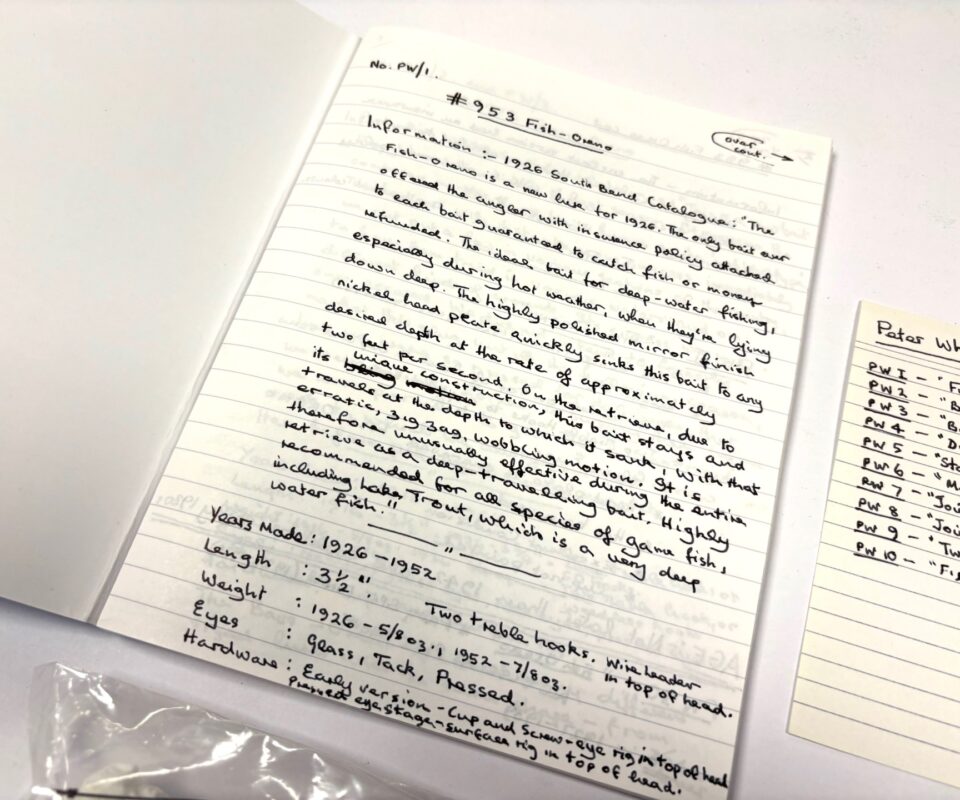 No. PW/1.
# 953 Fish-Oreno
over cont. →
Information :- 1926 South Bend Catalogue: "The
Fish-Oreno is a new lure for 1926. The only bait ever
offered the angler with insurance policy attached
to each bait guaranteed to catch fish or money
refunded. The ideal bait for deep-water fishing,
especially during hot weather, when they're lying
down deep. The highly polished mirror finish
nickel head plate quickly sinks this bait to any
desired depth at the rate of approximately
two feet per second. On the retrieve, due to
its unique construction, this bait stays and
travels at the depth to which it sank, with that
erratic, zig zag, wobbling motion. It is
therefore unusually effective during the entire
retrieve as a deep-travelling bait. Highly
recommended for all species of game fish,
including Lake Trout, which is a very deep
water fish."
Years Made : 1926 - 1952
Length : 3½". Two treble hooks. Wire leader in top of head.
Weight : 1926 - 5/8 oz., 1952 - 7/8 oz.
Eyes : Glass, Tack, Pressed.
Hardware : Early version - Cup and Screw-eye rig in top of head
Pressed eye stage - surface rig in top of head.
Peter Wh
PW 1 - "Fi
PW 2 - "B
PW 3 - "Ba
PW 4 - "D
PW 5 - "Sta
PW 6 - "M
PW 7 - "Joi
PW 8 - "Joi
PW 9 - "Tw
PW 10 - "Fis